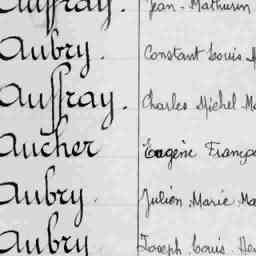 Auffray. Jean-Mathurin
Aubry. Constant Louis
Auffray. Charles Michel
Aucher Eugène
Aubry. Julien Marie
Aubry Joseph Louis